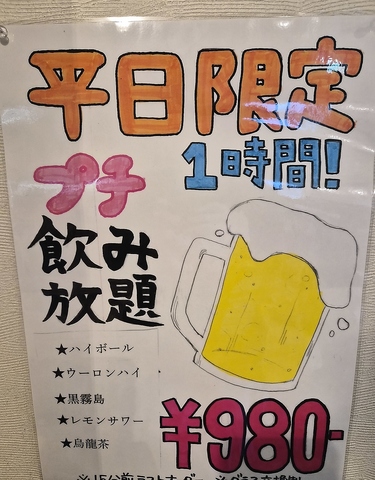 平日限定
1時間!
プチ
飲み
放題
★ハイボール
★ウーロンハイ
★黒霧島
★レモンサワー
★烏龍茶
¥980-